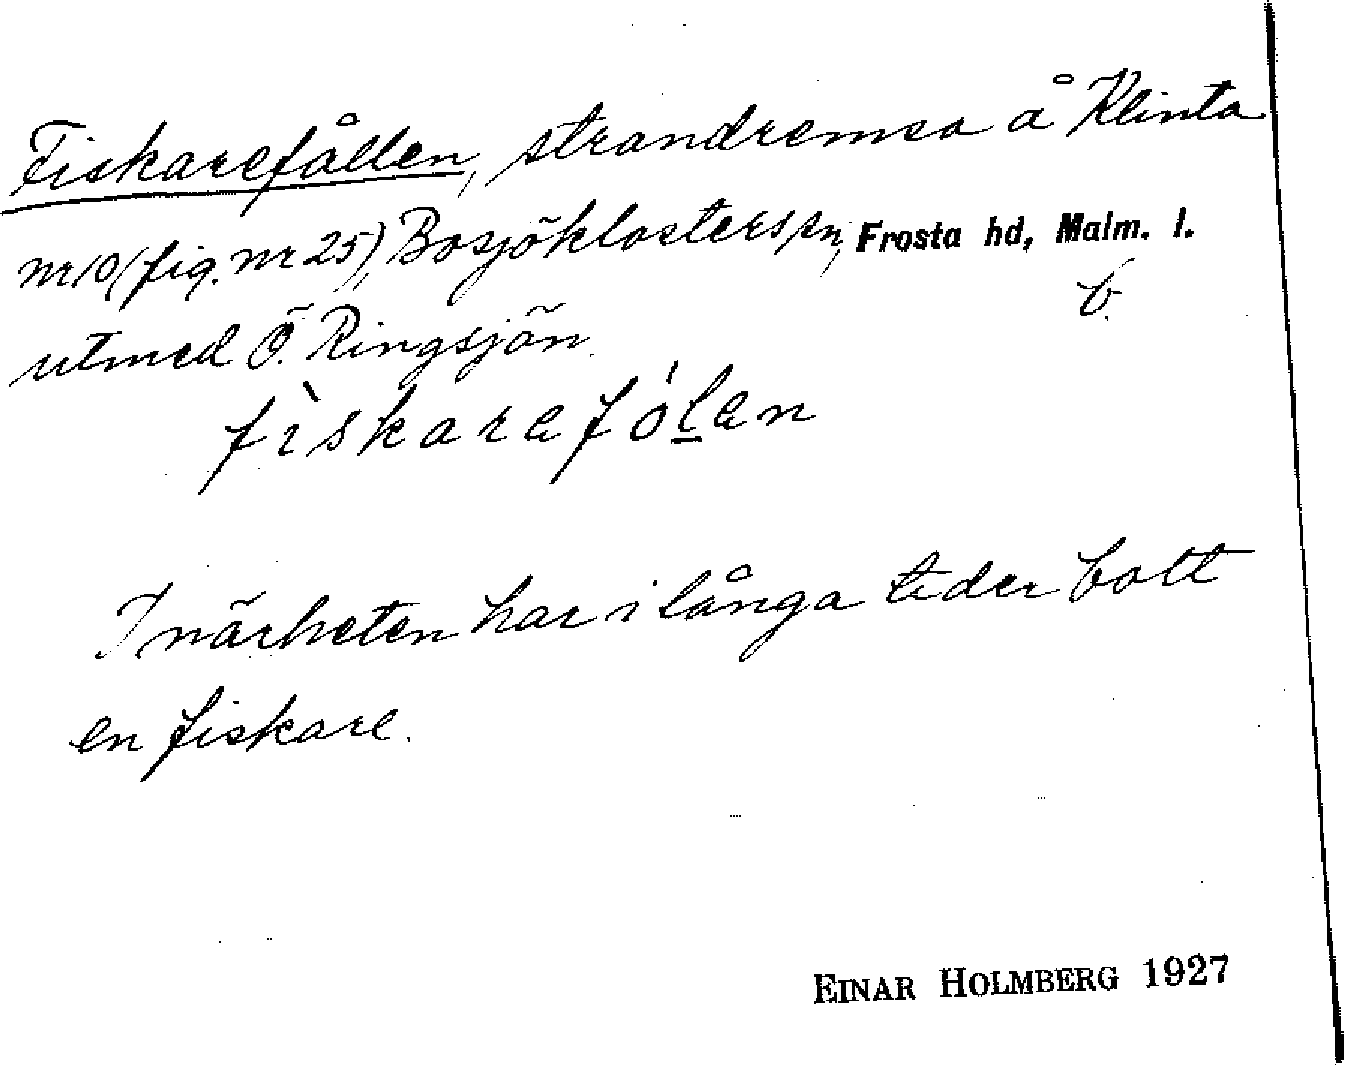 Fiskarefållen, strandremsa å Klinta
nr 10 (fig. nr 25), Bosjöklosters sn, Frosta hd, Malm. l.
b.
utmed Ö. Ringsjön.
fìskarefólen
I närheten har i långa tider bott
en fiskare.
EINAR HOLMBERG 1927